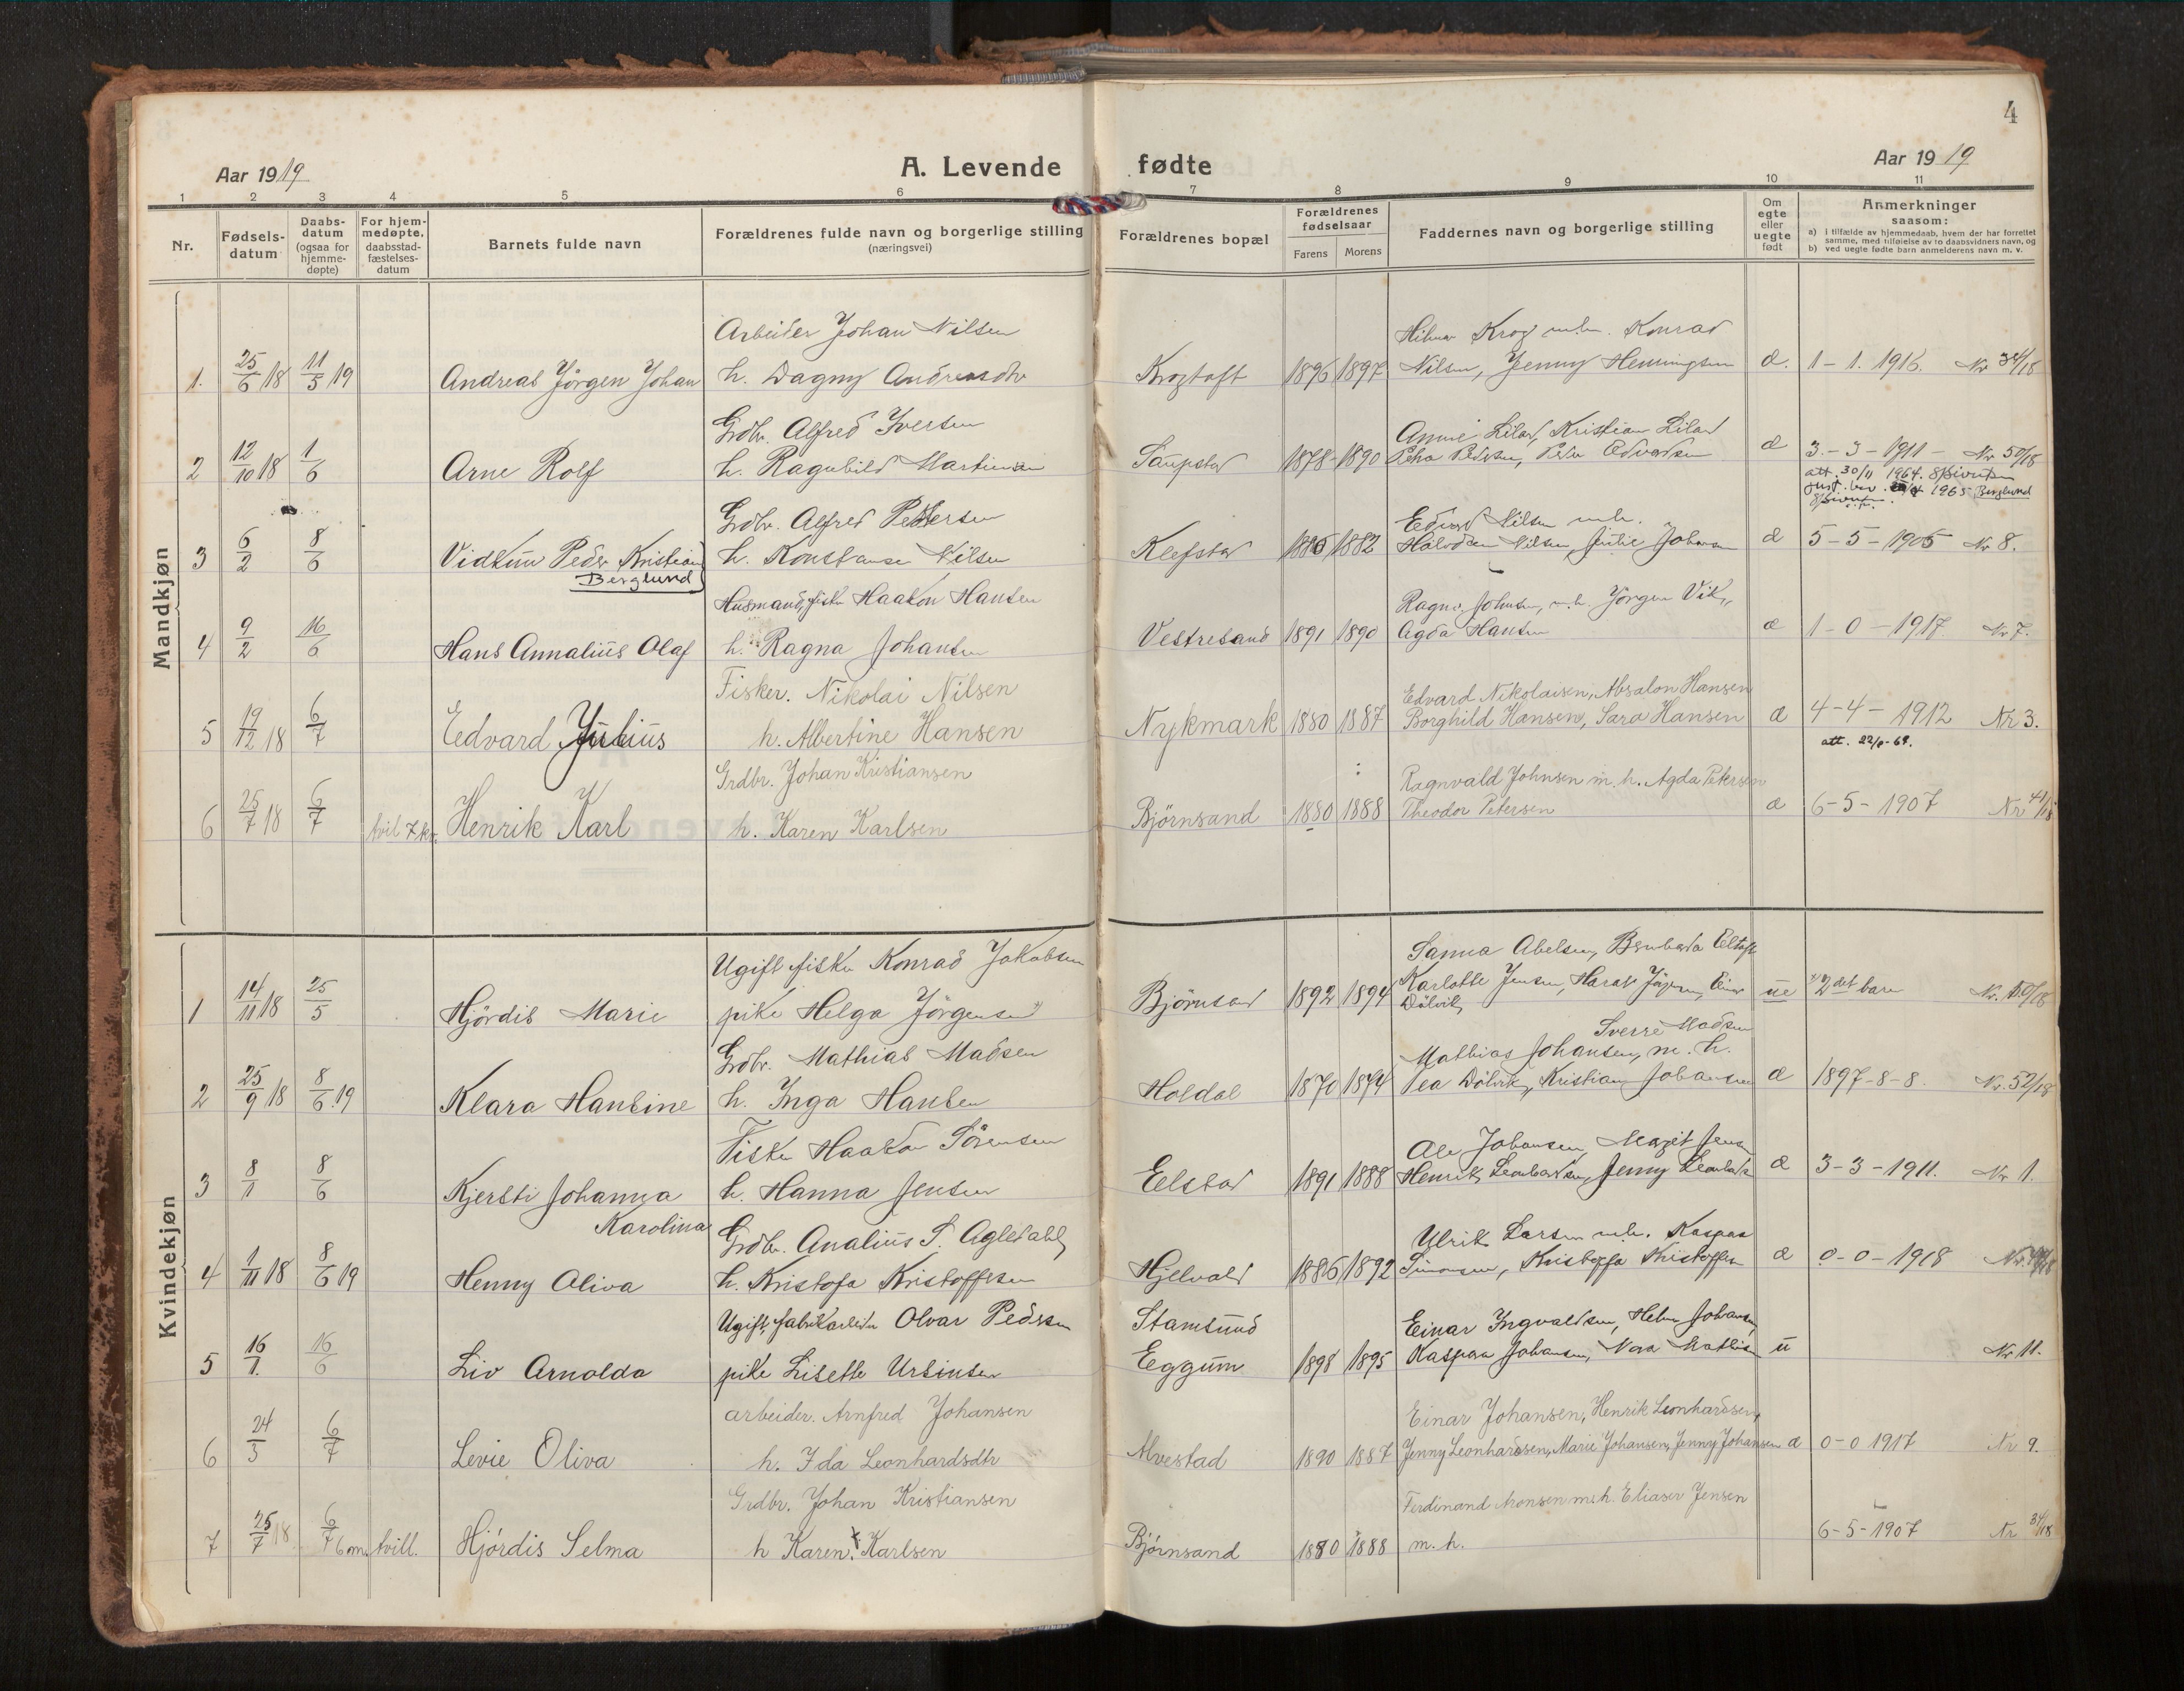 4
Aar 1919
A. Levende fødte
Aar 1919
1 2 3 4 5 6 7 8 9 10 11
Nr.
Fødsels-
datum
Daabs-
datum
(ogsaa for
hjemme-
døpte)
For hjem-
medøpte,
daabsstad-
fæstelses-
datum
Barnets fulde navn
Forældrenes fulde navn og borgerlige stilling
(næringsvei)
Forældrenes bopæl
Forældrenes
fødselsaar
Farens Morens
Faddernes navn og borgerlige stilling
Om
egte
eller
uegte
født
Anmerkninger
saasom:
a) i tilfælde av hjemmedaab, hvem der har forrettet
samme, med tilføielse av to daabsvidners navn, og
b) ved uegte fødte barn anmelderens navn m. v.
Mandkjøn
Arbeider Johan Nilsen
Hilmar Krog m.h. Konrad
1. 25/6 18 11/5 19 Andreas Jörgen Johan h. Dagny Andreasdtr Krogtoft 1896 1897 Nilsen, Jenny Henningsen d. 1-1. 1916. Nr 34/18
Grdbr. Alfred Iversen
Kristian Lilad
2 12/10 18 1/6 Arne Rolf h. Ragnhild Martinsen Saupstad 1878 1890 Pedersen, Peder Edvardsen d 3-3-1911- Nr 50/18
att. 30/11 1964.
1965 Berglund
Grdbr. Alfred Pettersen
Edvard Nilsen m.h.
3 6/2 8/6 Vidkun Peder Kristian h. Konstanse Nilsen Klefstad 1882 Halvdan Nilsen, Julie Johansen d 5-5-1905 Nr 8.
Berglund
Husmand, fisker Haakon Hansen
Ragna Johnsen, m.h. Jörgen Vik,
4 9/2 16/6 Hans Annalius Olaf h. Ragna Johansen Vestresand 1891 1890 Agda Hansen d 1-0-1917. Nr 7.
Fisker. Nikolai Nilsen
Edvard Nikolaisen, Absalon Hansen
5 19/12 18 6/7 Edvard Julius h. Albertine Hansen Nykmark 1880 1887 Borghild Hansen, Sara Hansen d 4-4-1912 Nr 3.
att. 22/8-69.
Grdbr. Johan Kristiansen
Ragnvald Johnsen m.h. Agda Petersen
6 25/7 18 6/7 tvil 7 kv. Henrik Karl h. Karen Karlsen Björnsand 1880 1888 Theodor Petersen d 6-5-1907 Nr 41/18
Kvindekjøn
Ugift fisker Konrad Jakobsen
Sanna Abelsen, Eltoft
1 14/11 18 25/5 Hjördis Marie pike Helga Jörgensen Björnsand 1892 1894 Karlotte Jensen, Harald Jörgensen, Einar ue 2det barn Nr.
Dölvik
Sverre Madsen
Grdbr. Mathias Madsen
Mathias Johansen, m. h.
2 25/9 18 8/6.19 Klara Hansine h. Inga Hansen Holdal 1870 1874 Pea Dölvik, Kristian Johansen d 1897-8-8. Nr. 52/18
Fisker Haakon Sörensen
Ole Johansen, Margit Jensen
3 8/1 8/6 Kjersti Johanna h. Hanna Jensen Eelstad 1891 1888 Henrik Leonhardsen, Jenny Leonhards d 3-3-1911. Nr 1.
Karolina
Grdbr. Analius S. Agledahl
Ulrik Larsen m.h. Kaspar
4 1/11 18 8/6 19 Henny Oliva h. Kristofa Kristoffersen Hjelvold 1886 1892 Simonsen, Kristoffa Kristoffersen d 0-0-1918
Ugift, fabrikarbeider Olvar Pedersen
Stamsund
Einar Ingvaldsen, Helen Johansen,
5 16/1. 16/6 Liv Arnolda pike Lisette Ursinsen Eggum 1898 1895 Kaspara Johansen, Nora Mathisen u Nr 11.
arbeider. Arnfred Johansen
Einar Johansen, Henrik Leonhardsen,
6 24/3 6/7 Levie Oliva h. Ida Leonhardsdtr Alvestad 1890 1887 Jenny Leonhardsen, Marie Johansen, Jenny Johansen d 0-0 1917 Nr 9.
Grdbr. Johan Kristiansen
Ferdinand Aronsen m.h. Eliaser Jensen
7 25/7 18 6/7 6 m. tvill. Hjördis Selma h Karen Karlsen Björnsand 1880 1888 m.h. 6-5-1907 Nr 34/18